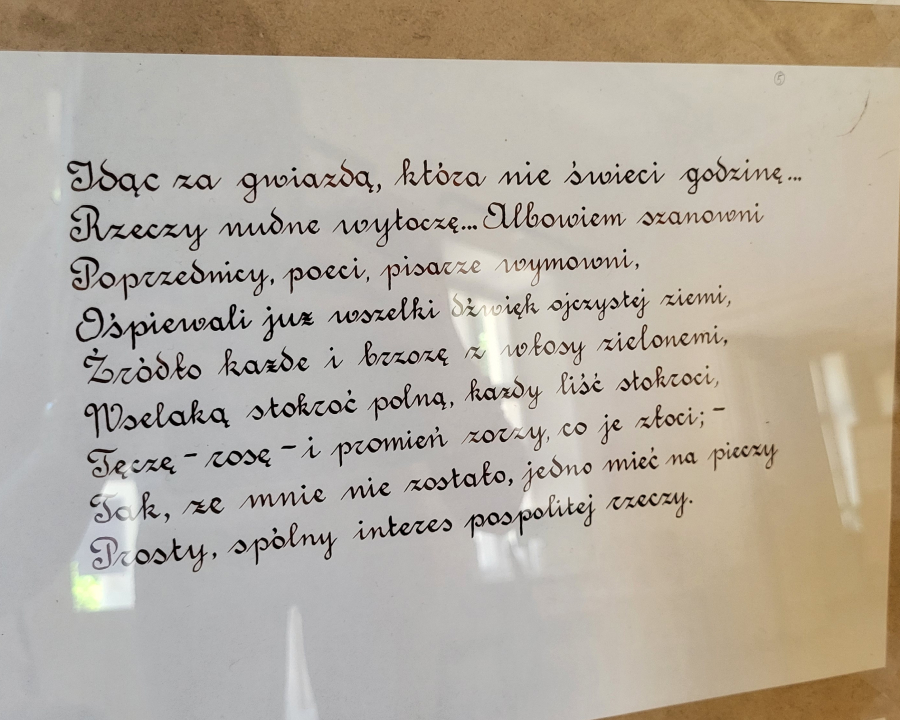 Idąc za gwiazdą, która nie świeci godzinę...
Rzeczy nudne wytoczę... Albowiem szanowni
Poprzednicy, poeci, pisarze wymowni,
Ośpiewali już wszelki dźwięk ojczystej ziemi,
Źródło każde i brzozę z włosy zielonemi,
Wselaką stokroć polną, każdy liść stokroci,
Tęczę - rosę - i promień zorzy, co je złoci; -
Tak, że mnie nie zostało, jedno mieć na pieczy
Prosty, spólny interes pospolitej rzeczy.
5